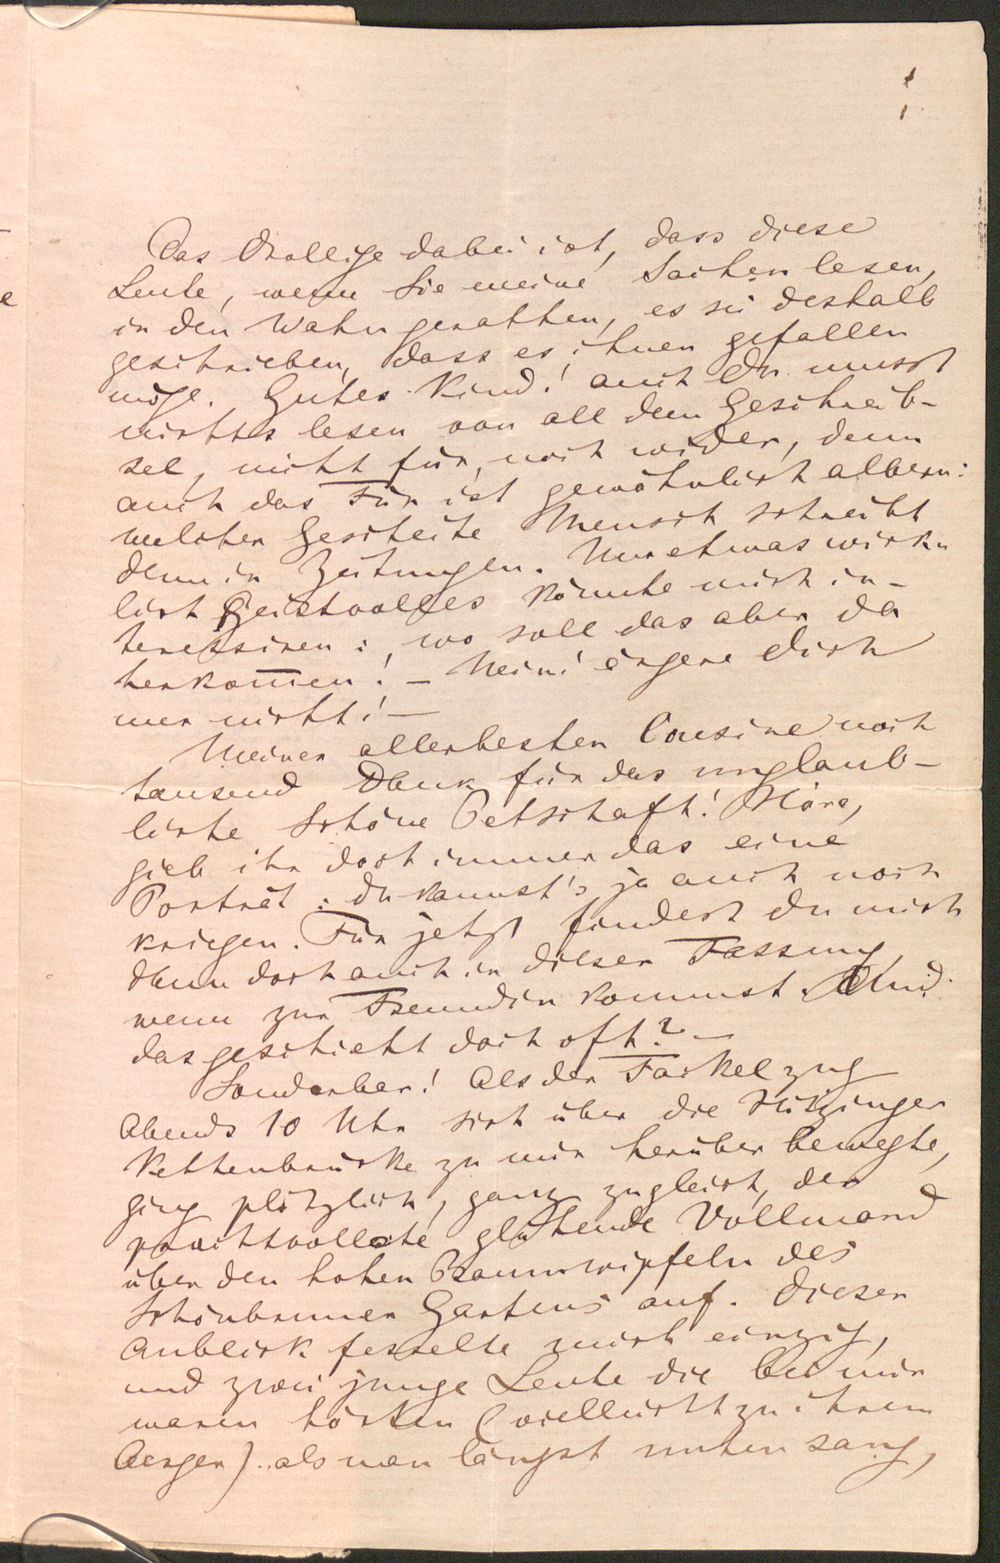 Das Drollige dabei ist, dass diese
Leute, wenn Sie meine Sachen lesen,
in den Wahn gerathen, es sei deshalb
geschrieben, dass es ihnen gefallen
möge. Gutes Kind! auch Du musst
nichts lesen von all dem Geschreib-
sel, nicht für, noch wider, denn
auch das Für ist gewöhnlich albern:
welcher Gescheite Mensch schreibt
denn in Zeitungen. Nur etwas wirk-
lich Geistvolles könnte mich in-
teressiren: wo soll das aber da
herkom̅en! – Nein! ärgere Dich
nur nicht! –
Meiner allerbesten Cousine noch
tausend Dank für das unglaub-
liche schöne Petschaft! Höre,
gieb ihr doch immer das eine
Porträt: du kannst's ja auch noch
kriegen. Für jetzt findest du mich
denn doch auch in dieser Fassung,
wenn zur Freundin kommst. Und
das geschieht doch oft? –
Sonderbar! Als der Fackelzug
Abends 10 Uhr sich über die Hitzinger
Kettenbrücke zu mir herüber bewegte,
ging plötzlich, ganz zugleich, der
prachtvollste glühende Vollmond
über den hohen Baumwipfeln des
Schönbrunner Gartens auf. Dieser
Anblick fesselte mich einzig,
und zwei junge Leute die bei mir
waren hörten (vielleicht zu ihrem
Aerger) als man längst unten sang,